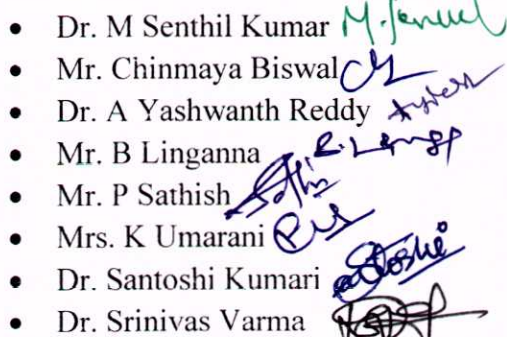 • Dr. M Senthil Kumar
• Mr. Chinmaya Biswal
• Dr. A Yashwanth Reddy
• Mr. B Linganna
• Mr. P Sathish
• Mrs. K Umarani
• Dr. Santoshi Kumari
• Dr. Srinivas Varma